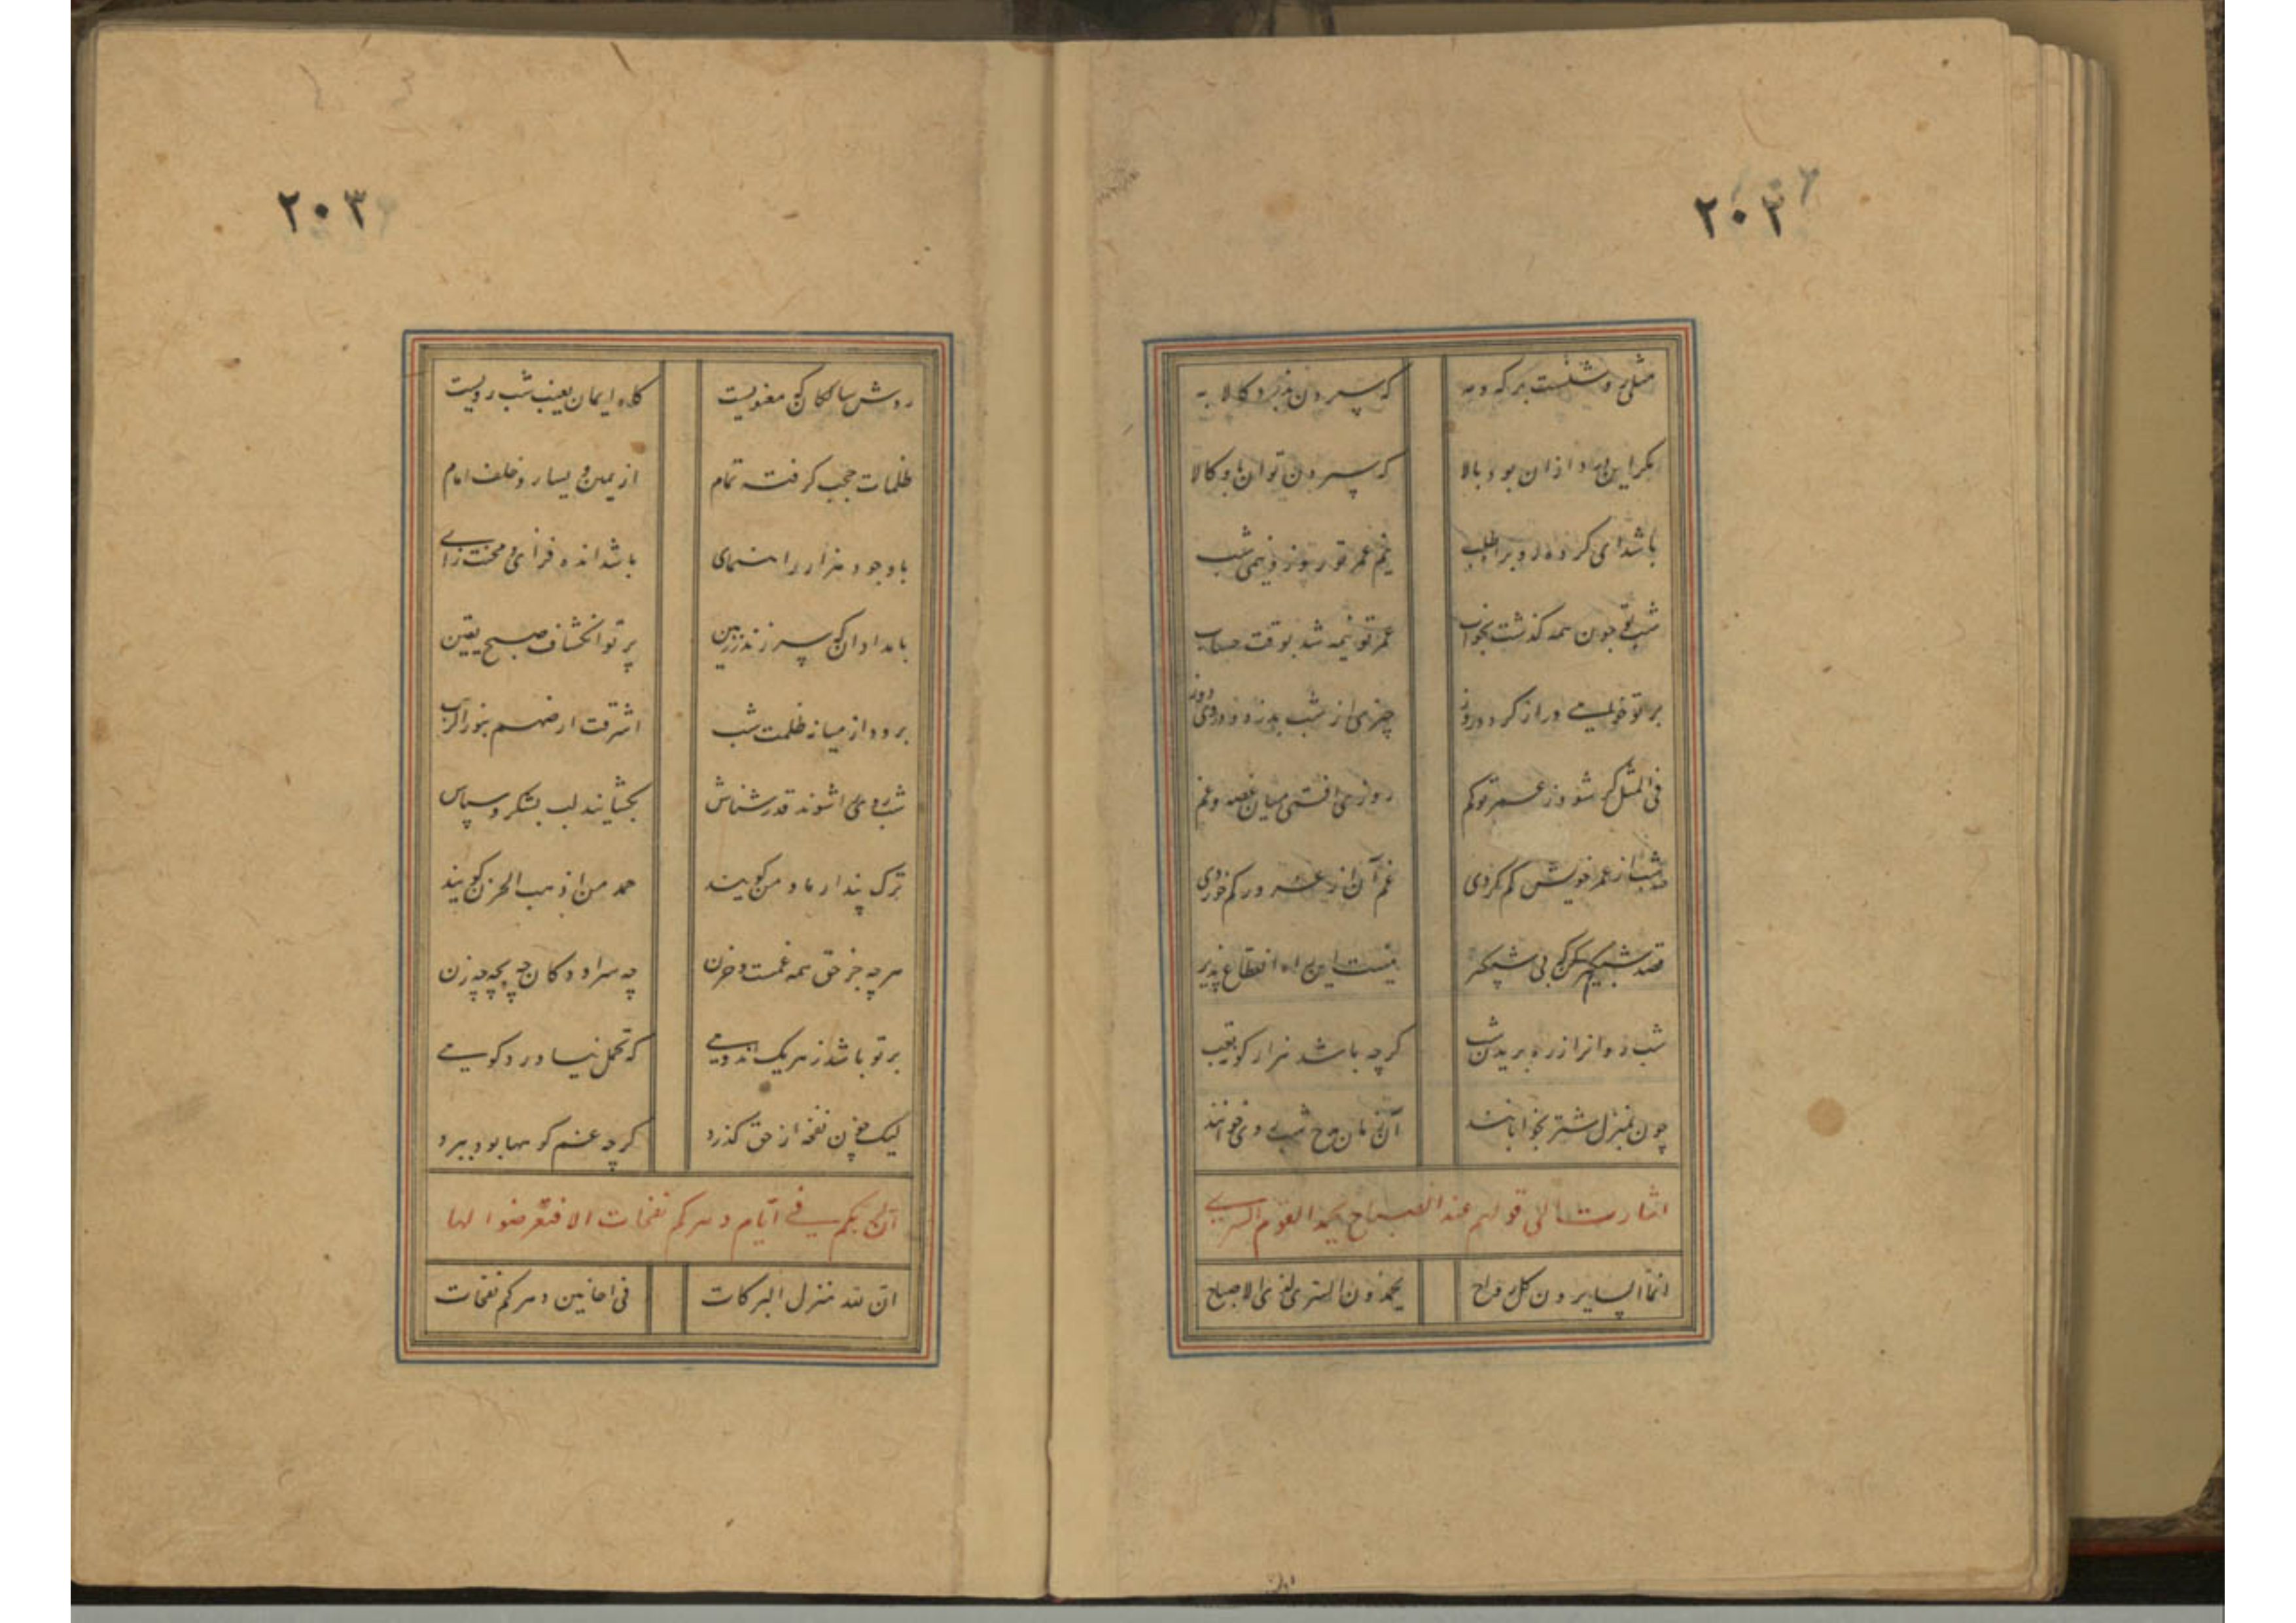 ۲۰۲
مثلی روشنست بر که و مه که سپردن بدزد کالا به
مکر این راه ازان بود بالا که سپردن توان باو کالا
باشد ای کرده رو براه طلب نیم عمر تو روز و نیمی شب
شب تو چون همه کذشت بخواب عمر تو نیمه شد بوقت حساب
بر تو خوابی دراز کرد دو روز چیزی از شب بدزد و در وی دوز
فی المثل کر شود ز عمر تو کم روزی افتی میان غصه و غم
صد شب از عمر خویش کم کردی غم آن از عمر در کم خوردی
قصد شبکیر کن که بی شبکیر نیست این راه انقطاع پذیر
شب روانرا ز ره بریدن شب کرچه باشد هزار کونه تعب
چون بمنزل شتر بخوابانند آن زمان مدح شب روی خوانند
اشارت الی قولهم عند الصباح یحمد القوم السری
انما السایرون کل رواح یحمدون السری لدی الاصباح
۲۰۳
روش سالکان که معنویست کاه ایمان بغیب شب رویست
ظلمات حجب کرفته تمام از یمین و یسار و خلف و امام
با وجود هزار راهنمای باشد اندوه فزای و محنت زای
بامدادان که سر زند ز زمین پرتو انکشاف صبح یقین
برود از میانه ظلمت شب اشرقت ارضهم بنور الرب
شب روی را شوند قدر شناس بکشایند لب بشکر و سپاس
ترک پندار ما و من کویند حمد من اذهب الحزن کویند
هر چه جز حق همه غمست و حزن چه سرا و دکان چه بچه چه زن
بر تو باشد ز هر یک اندوهی که تحمل نیاورد کوهی
لیک چون نفحه از حق کذرد کرچه غم کوهها بود ببرد
ان لربکم فی ایام دهرکم نفحات الا فتعرضوا لها
ان لله منزل البرکات فی احایین دهرکم نفحات